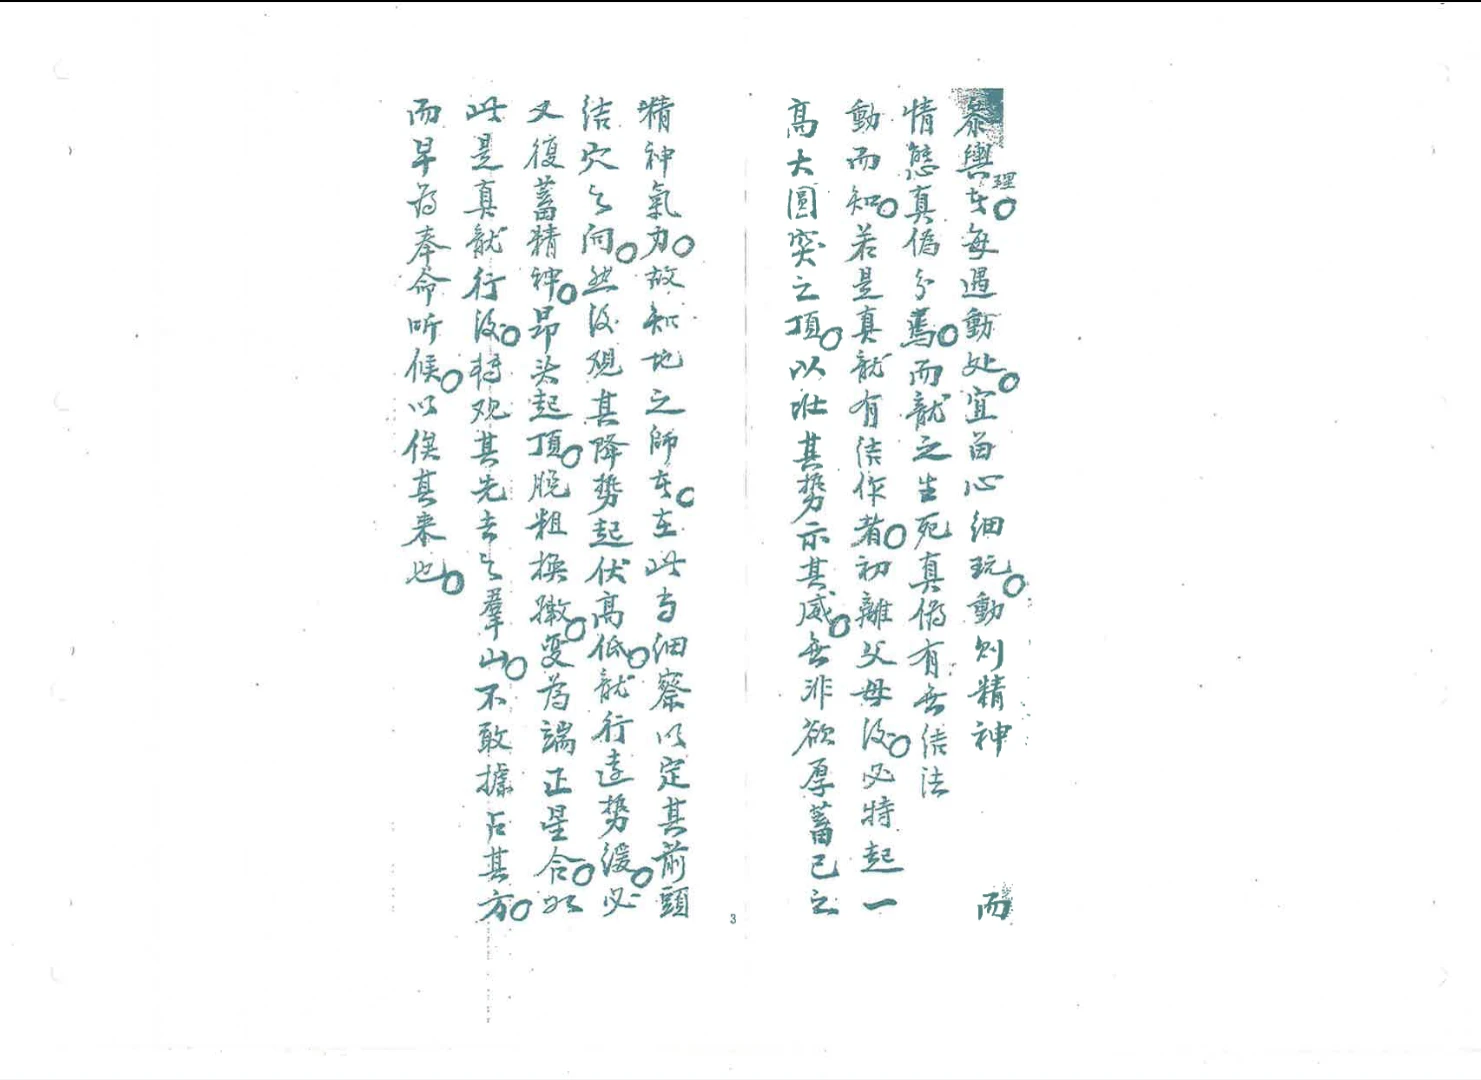 參輿理在。每遇動处。宜留心細玩。動則精神 而
情態真偽分焉。而龍之生死真偽有無结法
動而知。若是真龍有结作者。初離父母後。必特起一
高大圓突之頂。以壯其勢示其威。無非欲厚蓄己之
精神氣力。故知地之師者。在此当細察以定其前頭
结穴之向。然後观其降势起伏高低。龍行遠势緩。必
又復蓄精神。昂头起頂。脱粗换嫩。变为端正星合。如
此是真龍行後。轉观其先去之羣山。不敢據占其方。
而早为奉命听候。以俟其来也。
3